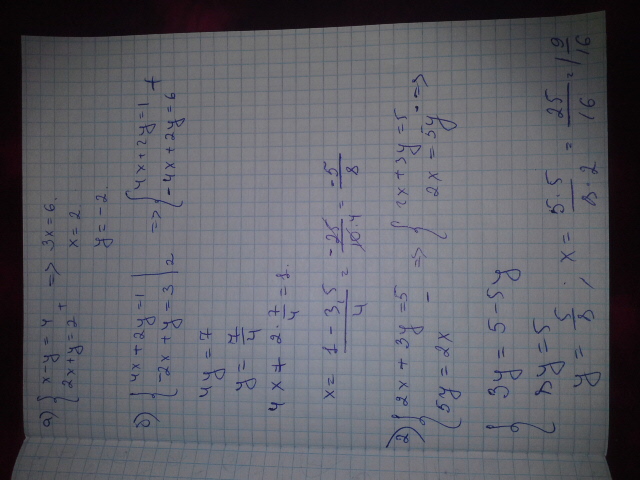 а) { x-y=4
2x+y=2 + => 3x=6
x=2
y=-2
б) { 4x+2y=1
-2x+y=3 | 2 => { 4x+2y=1 +
-4x+2y=6
4y=7
y=7/4
4x+2·7/4=1
x= (1-3,5)/4 = -25/(10·4) = -5/8
2) { 2x+3y=5
5y=2x - => { 2x+3y=5
2x=5y - =>
{ 3y=5-5y
8y=5
y=5/8, x= (5·5)/(8·2) = 25/16 = 1 9/16